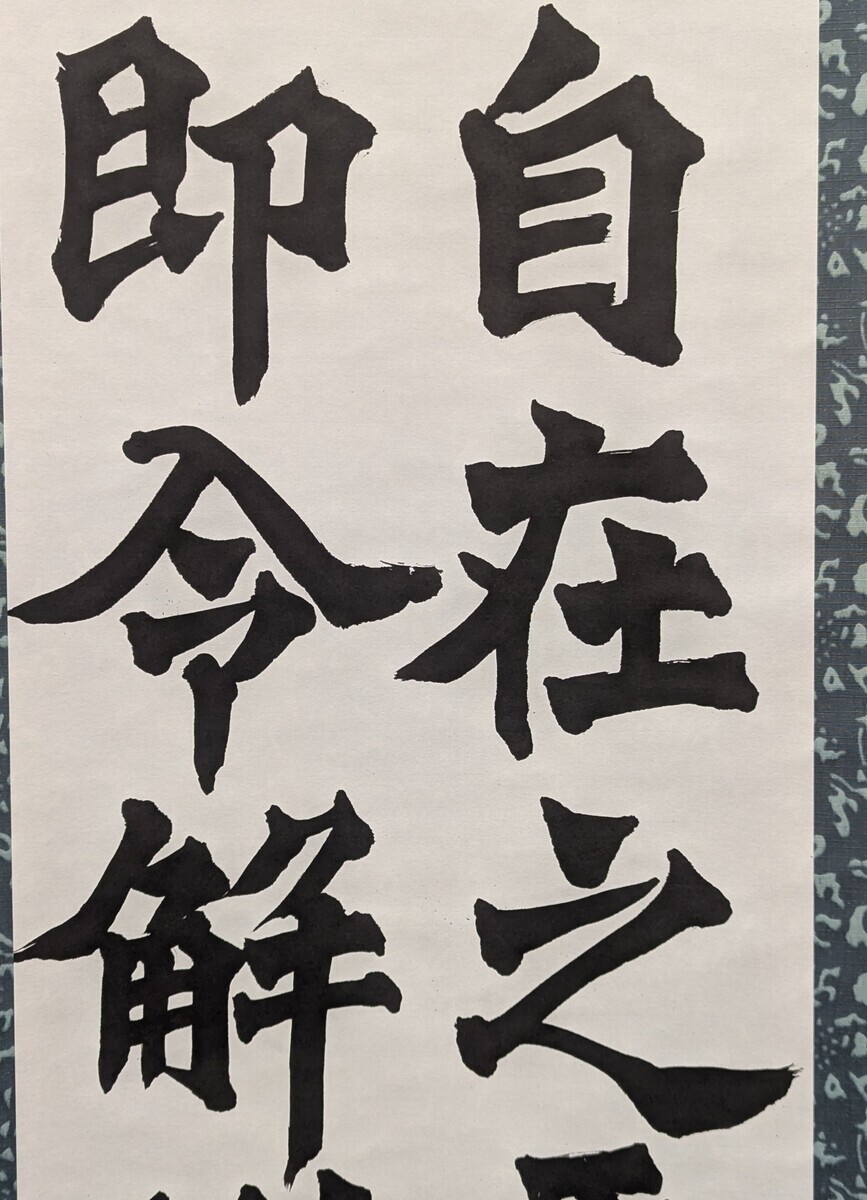 自在之
即令解